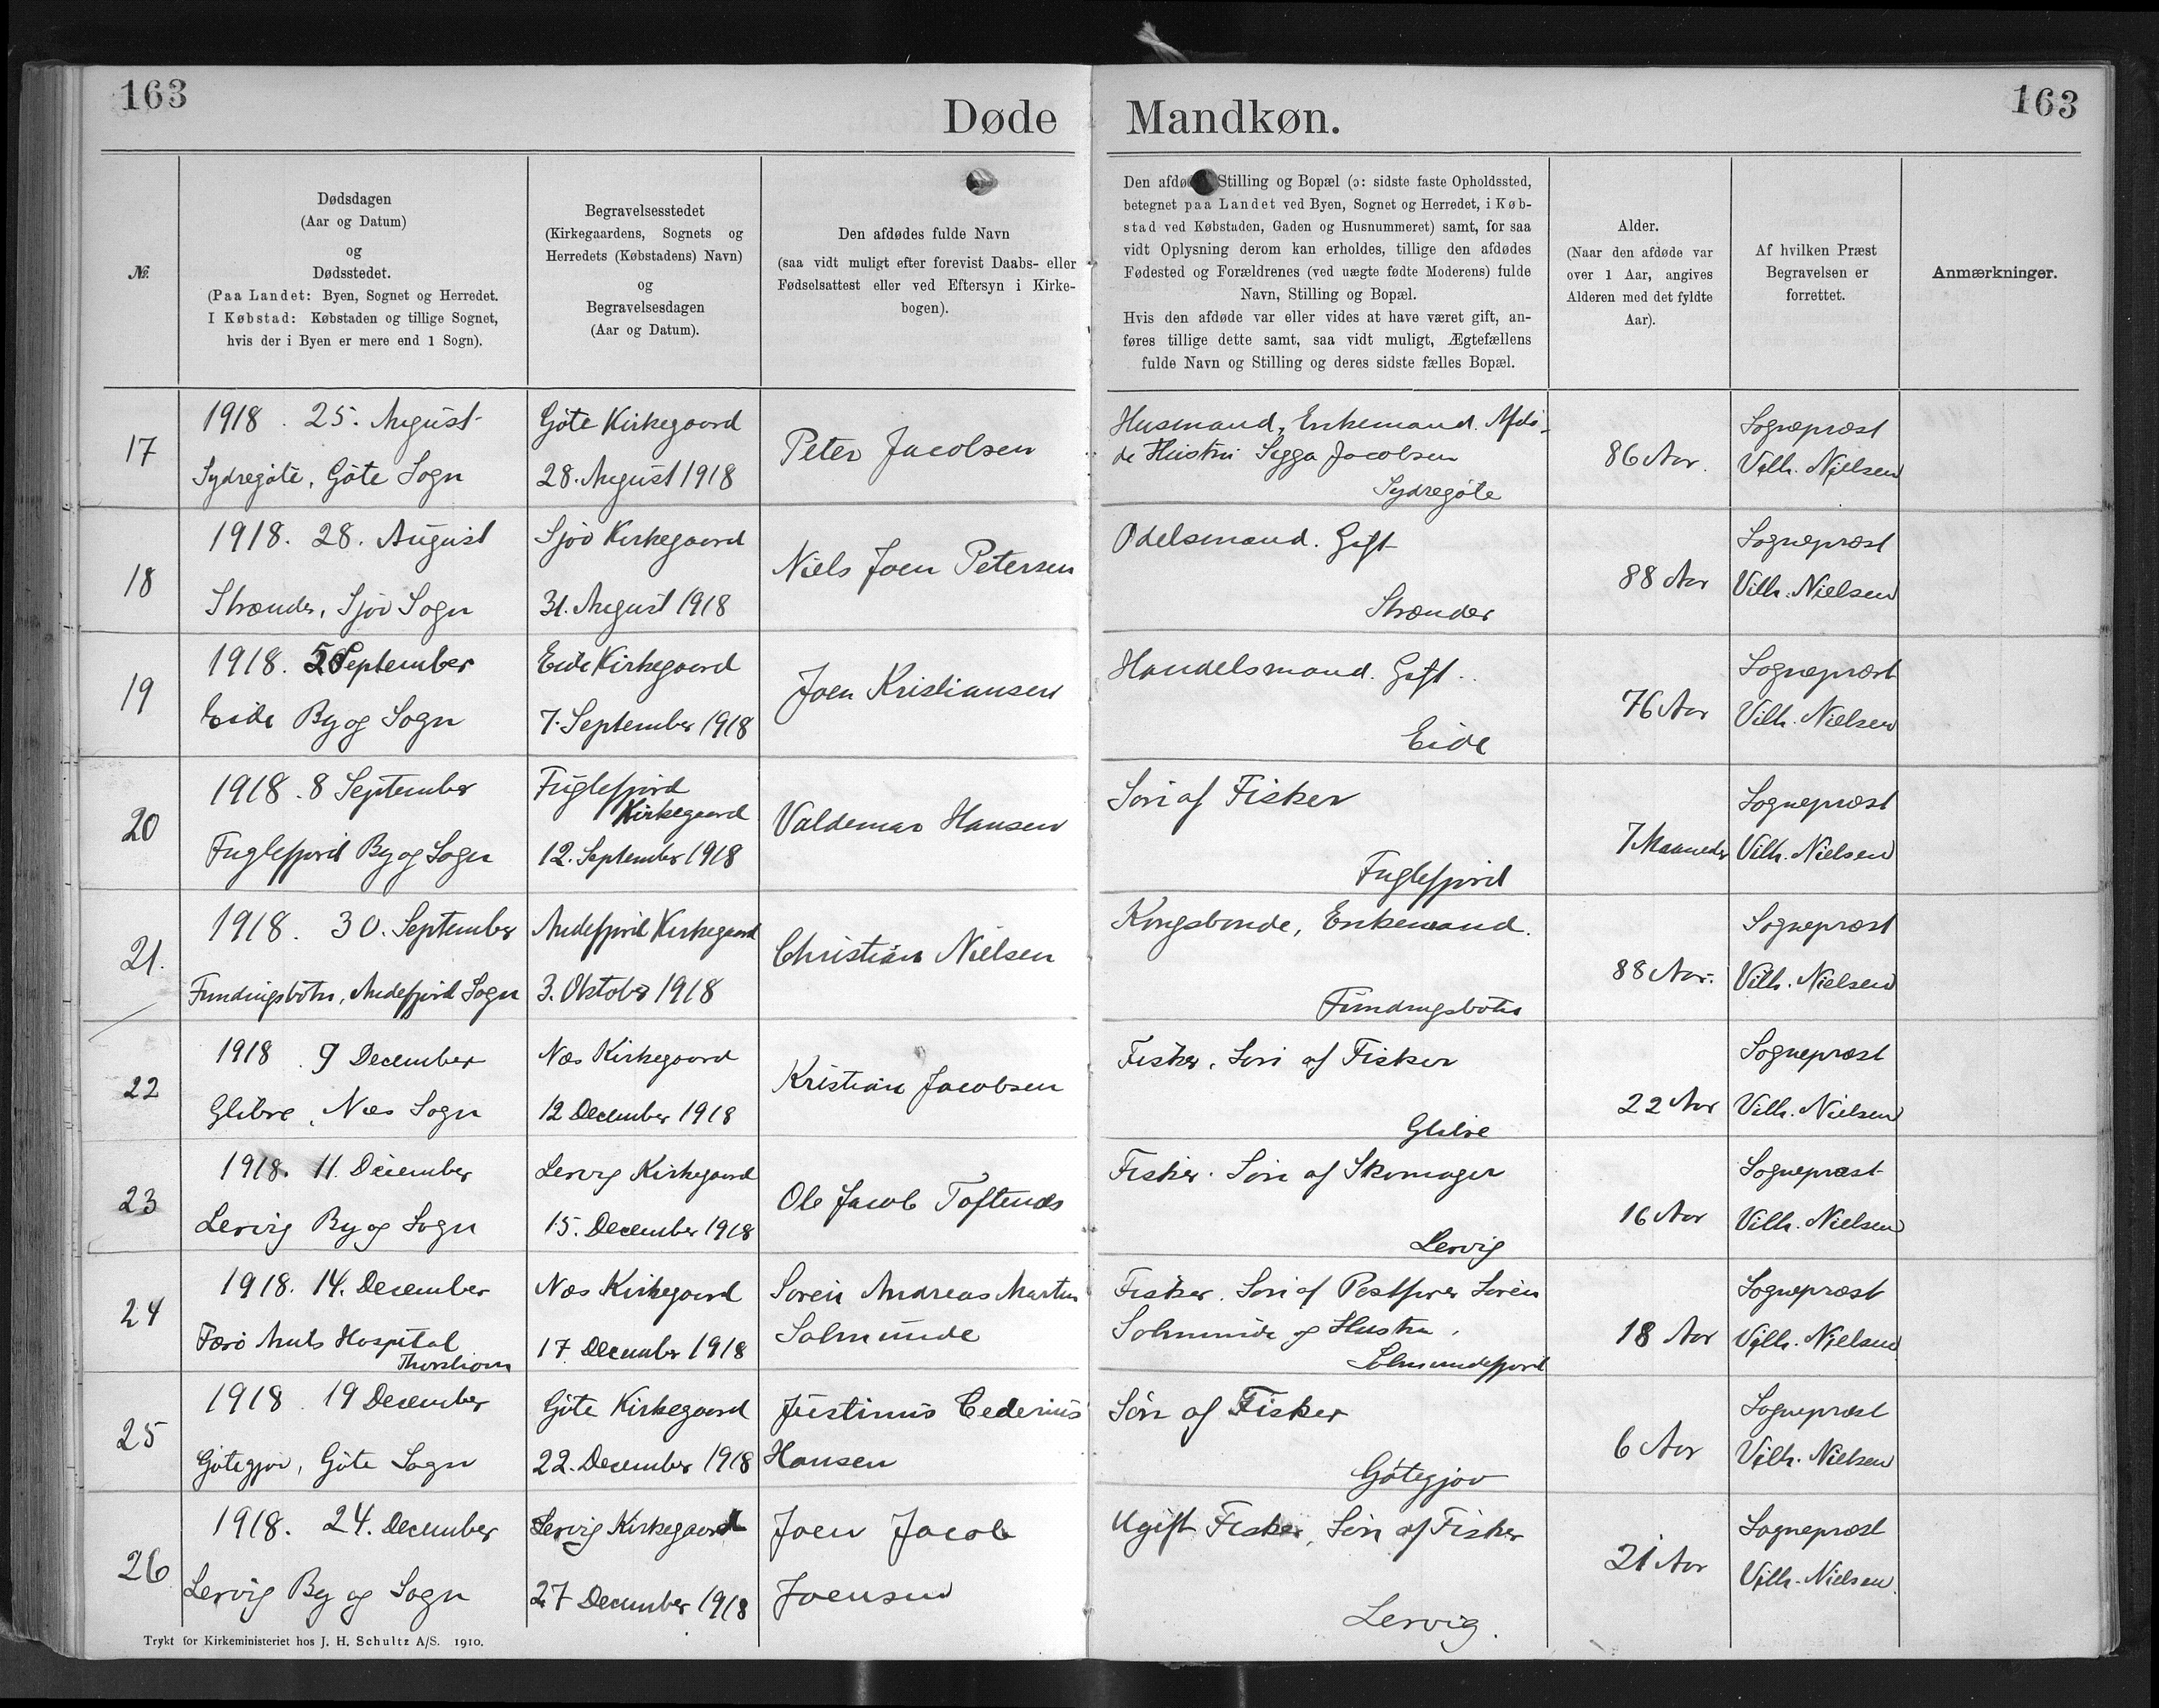 163
163
Døde Mandkøn.
№
Dødsdagen
(Aar og Datum)
og
Dødsstedet.
(Paa Landet: Byen, Sognet og Herredet.
I Købstad: Købstaden og tillige Sognet,
hvis der i Byen er mere end 1 Sogn).
Begravelsesstedet
(Kirkegaardens, Sognets og
Herredets (Købstadens) Navn)
og
Begravelsesdagen
(Aar og Datum).
Den afdødes fulde Navn
(saa vidt muligt efter forevist Daabs- eller
Fødselsattest eller ved Eftersyn i Kirke-
bogen).
Den Stilling og Bopæl (ɔ: sidste faste Opholdssted,
betegnet paa Landet ved Byen, Sognet og Herredet, i Køb-
stad ved Købstaden, Gaden og Husnummeret) samt, for saa
vidt Oplysning derom kan erholdes, tillige den afdødes
Fødested og Forældrenes (ved uægte fødte Moderens) fulde
Navn, Stilling og Bopæl.
Hvis den afdøde var eller vides at have været gift, an-
føres tillige dette samt, saa vidt muligt, Ægtefællens
fulde Navn og Stilling og deres sidste fælles Bopæl.
Alder.
(Naar den afdøde var
over 1 Aar, angives
Alderen med det fyldte
Aar).
Af hvilken Præst
Begravelsen er
forrettet.
Anmærkninger.
17
1918. 25. August
Sydregöte, Göte Sogn
Göte Kirkegaard
28. August 1918
Peter Jacobsen
Husmand, Enkemand. Afdö-
de Hustru Sigga Jacobsen
Sydregöte
86 Aar.
Sognepræst
Vilh. Nielsen
18
1918. 28. August
Strænder, Sjov Sogn
Sjov Kirkegaard
31. August 1918
Niels Joen Petersen
Odelsmand. Gift
Strænder
88 Aar
Sognepræst
Vilh. Nielsen
19
1918. September
Eide By og Sogn
Eide Kirkegaard
7. September 1918
Joen Kristiansen
Handelsmand. Gift.
Eide
76 Aar
Sognepræst
Vilh. Nielsen
20
1918. 8 September
Fuglefjord By og Sogn
Fuglefjord
Kirkegaard
12. September 1918
Valdemar Hansen
Sön af Fisker
Fuglefjord
7 Maaneder
Sognepræst
Vilh. Nielsen
21.
1918. 30. September
Fundingsbotn, Andefjord Sogn
Andefjord Kirkegaard
3. Oktober 1918
Christian Nielsen
Kongsbonde, Enkemand.
Fundingsbotn
88 Aar.
Sognepræst
Vilh. Nielsen
22
1918. 9 December
Glibre, Næs Sogn
Næs Kirkegaard
12 December 1918
Kristian Jacobsen
Fisker. Sön af Fisker
Glibre
22 Aar
Sognepræst
Vilh. Nielsen
23
1918. 11. December
Lervig By og Sogn
Lervig Kirkegaard
15. December 1918
Ole Jacob Toftenæs
Fisker. Sön af Skomager
Lervig
16 Aar
Sognepræst
Vilh. Nielsen
24
1918. 14. December
Færö Amts Hospital
Thorshavn
Næs Kirkegaard
17 December 1918
Sören Andreas Martin
Solmunde
Fisker. Sön af Postfører Sören
Solmunde og Hustru.
Solmundefjord
18 Aar
Sognepræst
Vilh. Nielsen
25
1918. 19 December
Götegjov, Göte Sogn
Göte Kirkegaard
22. December 1918
Justinus Cederius
Hansen
Sön af Fisker
Götegjov
6 Aar
Sognepræst
Vilh. Nielsen
26
1918. 24. December
Lervig By og Sogn
Lervig Kirkegaard
27 December 1918
Joen Jacob
Joensen
Ugift Fisker, Sön af Fisker
Lervig.
21 Aar
Sognepræst
Vilh. Nielsen.
Trykt for Kirkeministeriet hos J. H. Schultz A/S. 1910.